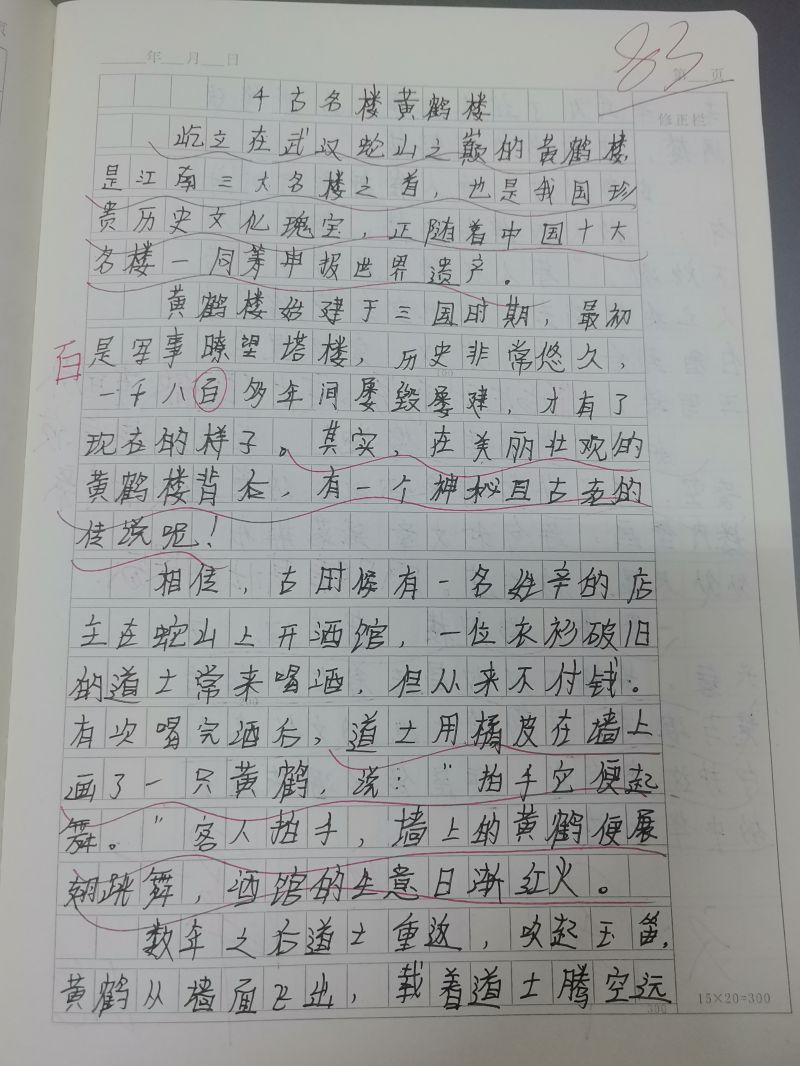 83
年 月 日
第 页
修正栏
千古名楼黄鹤楼
屹立在武汉蛇山之巅的黄鹤楼
是江南三大名楼之首，也是我国珍
贵历史文化瑰宝，正随着中国十大
名楼一同筹申报世界遗产。
黄鹤楼始建于三国时期，最初
百
是军事瞭望塔楼，历史非常悠久，
一千八百多年间屡毁屡建，才有了
现在的样子。其实，在美丽壮观的
黄鹤楼背后，有一个神秘且古老的
传说呢！
相传，古时候有一名姓辛的店
主在蛇山上开酒馆，一位衣衫破旧
的道士常来喝酒，但从来不付钱。
有次喝完酒后，道士用橘皮在墙上
画了一只黄鹤，说："拍手它便起
舞。"客人拍手，墙上的黄鹤便展
翅跳舞，酒馆的生意日渐红火。
数年之后道士重返，吹起玉笛，
黄鹤从墙面飞出，载着道士腾空远
15×20=300
300